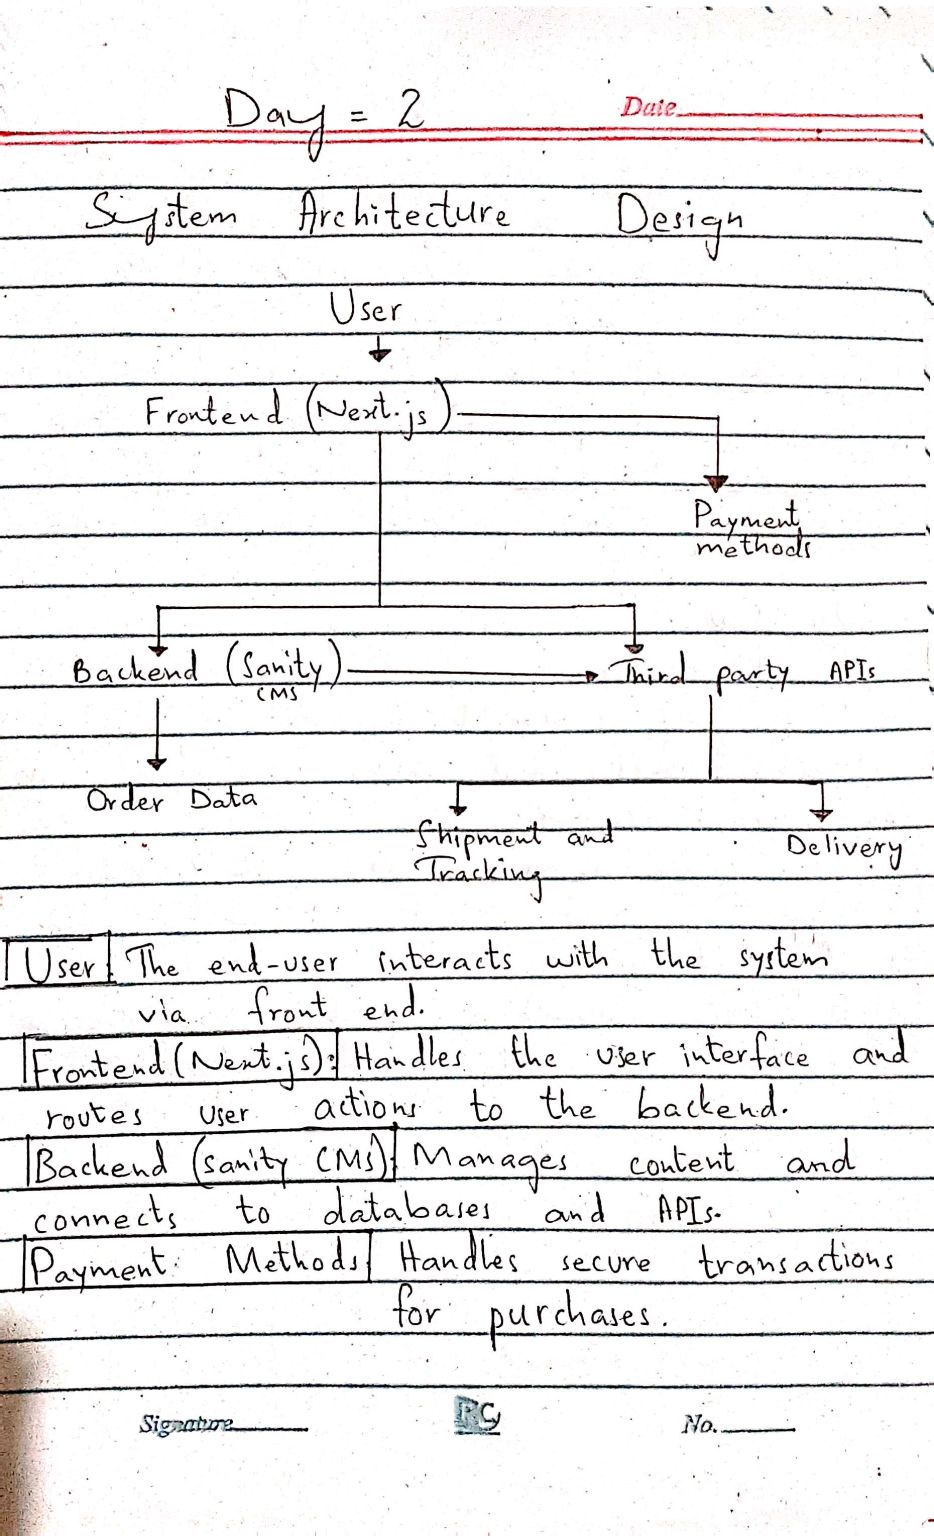 Day = 2
Date
System Architecture Design
User
Frontend (Next.js)
Payment
methods
Backend (Sanity)
CMS
Third party APIs
Order Data
Shipment and
Tracking
Delivery
User The end-user interacts with the system
via front end.
Frontend (Next.js): Handles the user interface and
routes user actions to the backend.
Backend (Sanity CMS): Manages content and
connects to databases and APIs.
Payment Methods Handles secure transactions
for purchases.
Signature
PC
No.